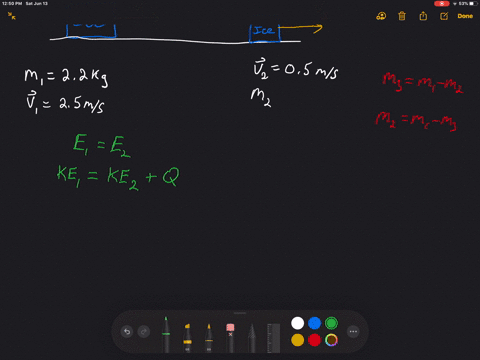 12:50 PM Sat Jun 13
93%
Done
Ice
Ice
m₁ = 2.2 kg
V⃗₁ = 2.5 m/s
V⃗₂ = 0.5 m/s
m₂
m₃ = m₁ - m₂
m₂ = m₁ - m₃
E₁ = E₂
KE₁ = KE₂ + Q